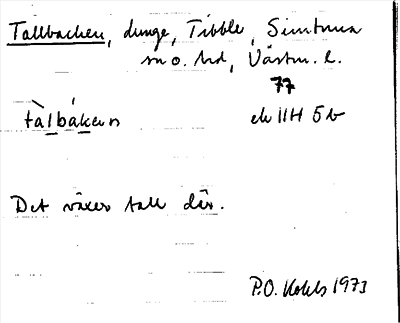 Tallbacken, dunge, Tibble, Simtuna
sn o. hd, Västm. l.
77
tàlbáken ek 11H 5b
Det växer tall där.
P.O. 1973